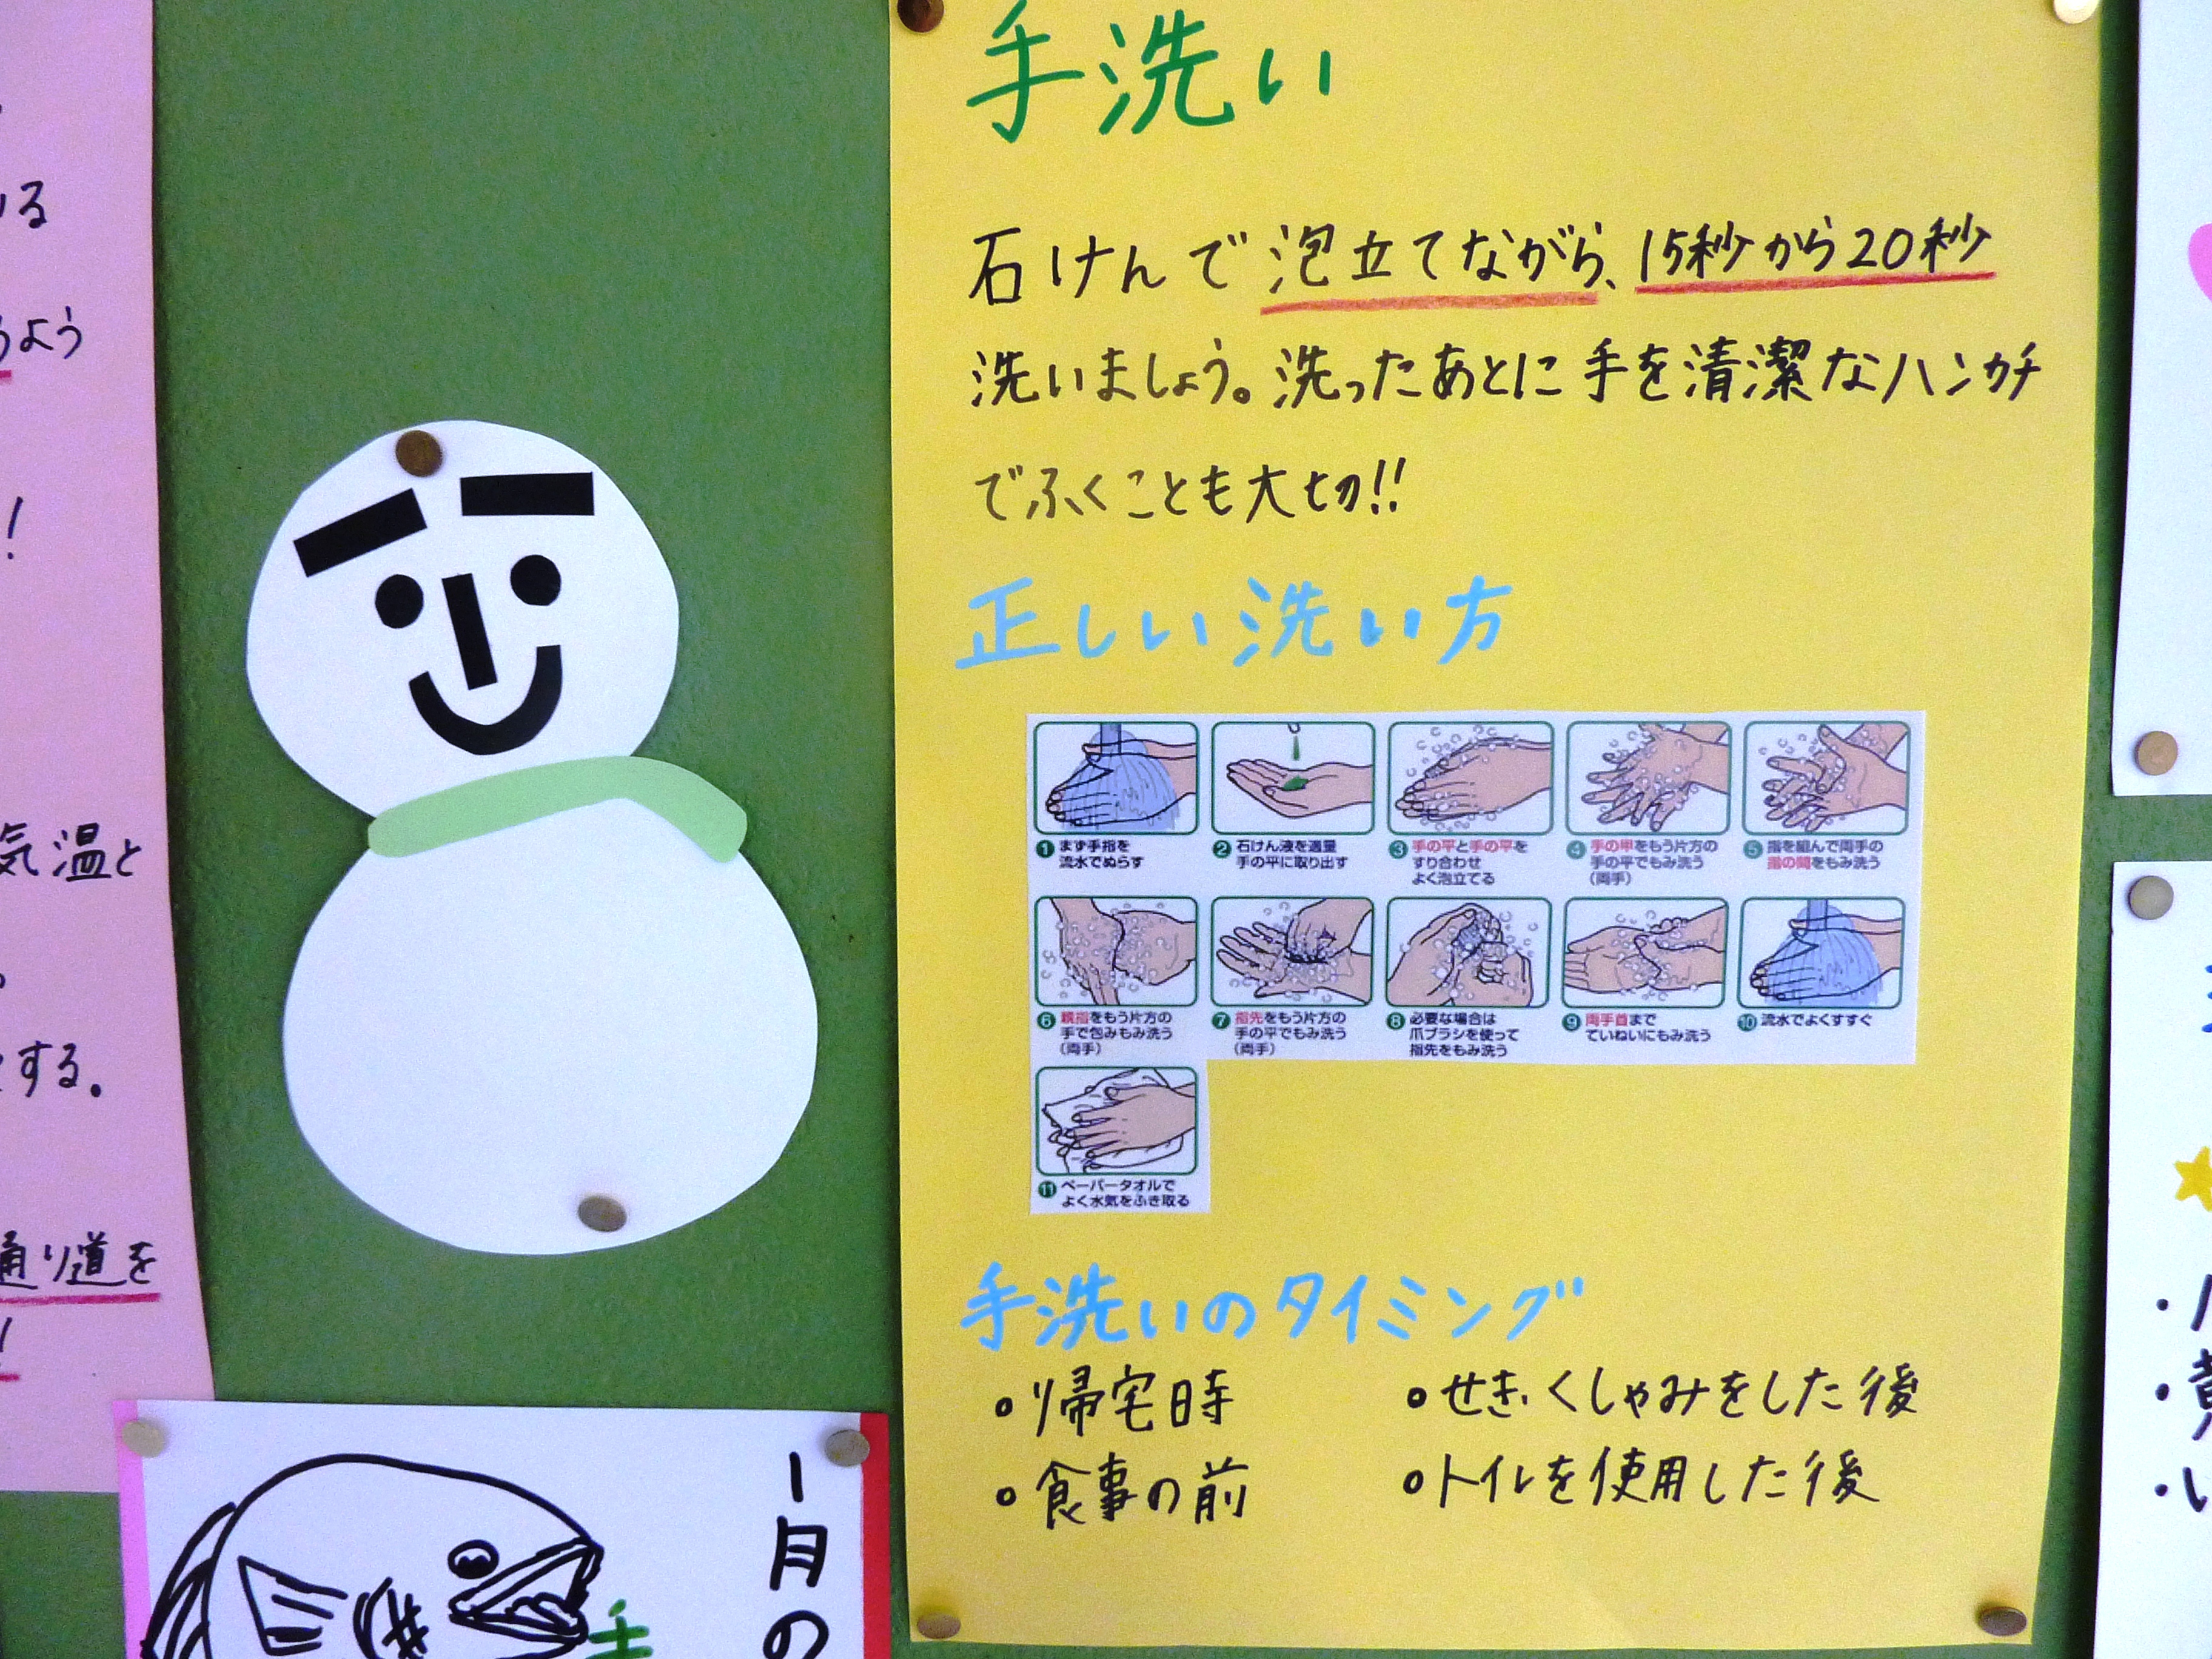 いる
うよう
!
気温と
する。
通り道を
!
手洗い
石けんで泡立てながら、15秒から20秒
洗いましょう。洗ったあとに手を清潔なハンカチ
でふくことも大切!!
正しい洗い方
1 まず手指を
流水でぬらす
2 石けん液を適量
手の平に取り出す
3 手の平と手の平を
すり合わせ
よく泡立てる
4 手の甲をもう片方の
手の平でもみ洗う
(両手)
5 指を組んで両手の
指の間をもみ洗う
6 親指をもう片方の
手で包みもみ洗う
(両手)
7 指先をもう片方の
手の平でもみ洗う
(両手)
8 必要な場合は
爪ブラシを使って
指先をもみ洗う
9 両手首まで
ていねいにもみ洗う
10 流水でよくすすぐ
11 ペーパータオルで
よく水気をふき取る
手洗いのタイミング
・帰宅時
・せき、くしゃみをした後
・食事の前
・トイレを使用した後
1月の